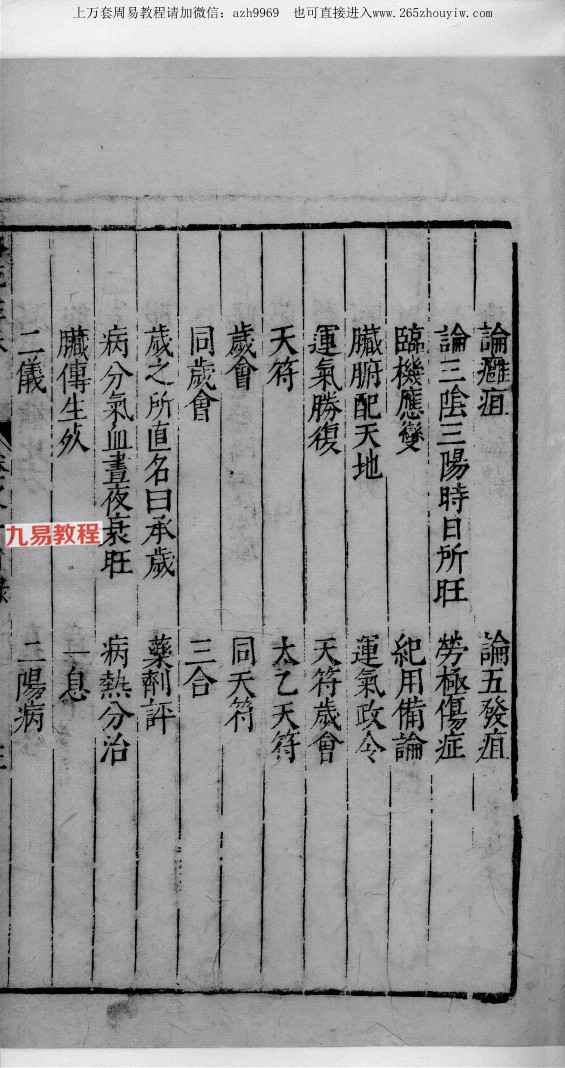 上万套周易教程请加微信：azh9969　也可直接进入www.265zhouyiw.com
論癰疽　論五發疽
論三陰三陽時日所旺　勞極傷症
臨機應變　紀用備論
臟腑配天地　運氣政令
運氣勝復　天符歲會
天符　太乙天符
歲會　同天符
同歲會　三合
歲之所直名曰承歲　藥劑評
病分氣血晝夜衰旺　病熱分治
臟傳生死　一息
二儀　二陽病
九易教程